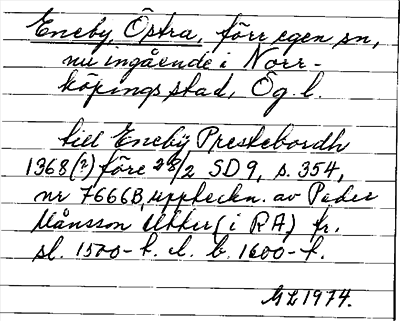 Eneby, Östra, förr egen sn,
nu ingående i Norr-
köpings stad, Ög. l.
till Eneby Prestebordh
1368(?) före 28/2 SD9, s. 354,
nr 7666B, uppteckn. av Peder
Månsson Utter (i RA) fr.
sl. 1500-t. el. b. 1600-t.
GL 1974.